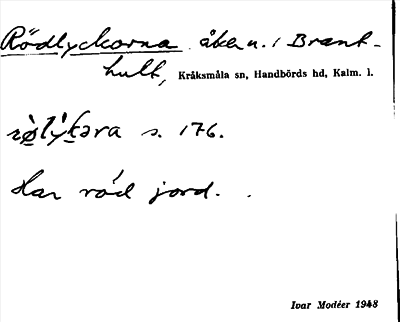 Rödlyckorna åker u. i Brant-
hult, Kråksmåla sn, Handbörds hd, Kalm. l.
s. 176.
Har röd jord.
Ivar Modéer 1948